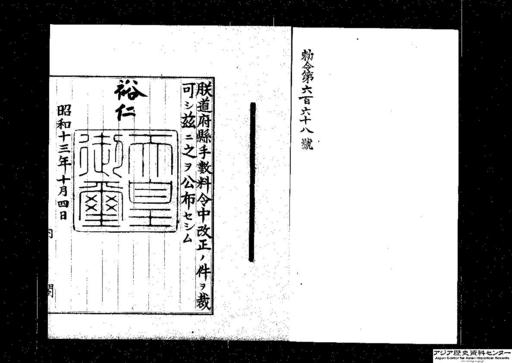 勅令第六百六十八號
朕道府縣手數料令中改正ノ件ヲ裁
可シ茲ニ之ヲ公布セシム
裕仁
天皇御璽
昭和十三年十月四日
内閣
アジア歴史資料センター
Japan Center for Asian Historical Records